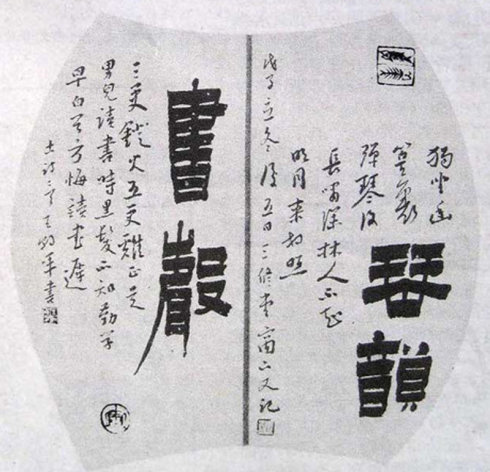 琴韻
獨坐幽
篁裏
彈琴復
長嘯深林人不知
明月來相照
戊子立冬後五日三修堂
又記
書聲
三更燈火五更雞正是
男兒讀書時黑髮不知勤學
早白首方悔讀書遲